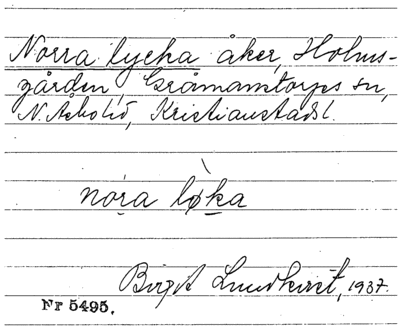 Norra lycka åker, Holms-
gården, Gråmanstorps sn,
N. Åsbo hd, Kristianstads l.
nóra lø̀ka
Birgit Lundkvist, 1937.
Nr 5495.